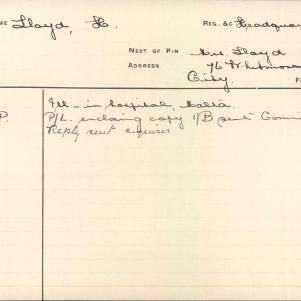 ME Lloyd, H. REG. &C Headquar
NEXT OF KIN Mrs Lloyd
ADDRESS 76 Whitmor
City.
Ill - in hospital, Malta.
P. P/L. enclosing copy 1/B sent Commi
Reply sent enquirer